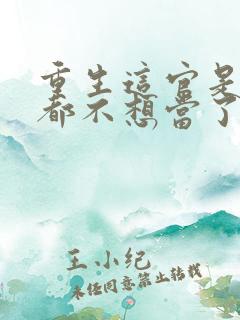 重生這官是
都不想當了
王小纪
未经同意禁止转载